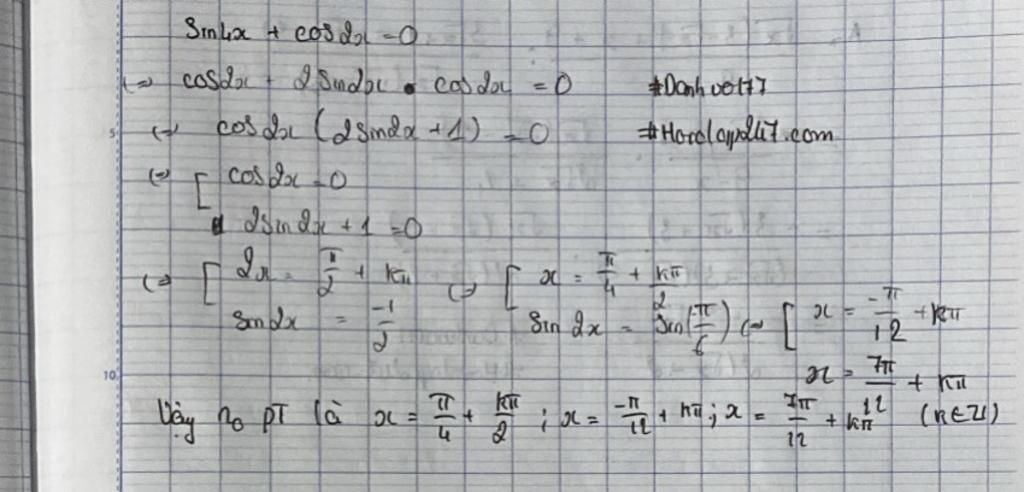 sin4x + cos2x = 0
(=) cos2x + 2sin2x . cos2x = 0 #Danhvo177
(=) cos2x (2sin2x + 1) = 0
(=) [ cos2x = 0
2sin2x + 1 = 0
(=) [ 2x = π/2 + kπ (=) [ x = π/4 + kπ/2
sin2x = -1/2 sin2x = sin(-π/6) (=) [ x = -π/12 + kπ
x = 7π/12 + kπ
Vậy no pT là x = π/4 + kπ/2 ; x = -π/12 + kπ ; x = 7π/12 + kπ (k∈Z)